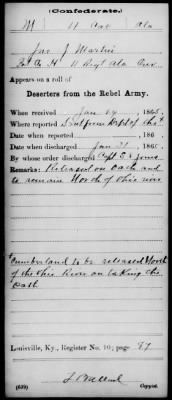 (Confederate.)
M 11 Cav Ala
Jas J Martin
Pvt Co H 11 Regt Ala Cav.
Appears on a roll of
Deserters from the Rebel Army.
When received Jan 19, 1865.
Where reported Sent from Dept of the
Date when reported , 186 .
Date when discharged Jan 21 , 1865.
By whose order discharged
Remarks: Released on Oath and
to remain North of Ohio river
Cumberland to be released North
of the Ohio River on taking the
Oath
Louisville, Ky., Register No. 10; page 87
(639)
Copyist.